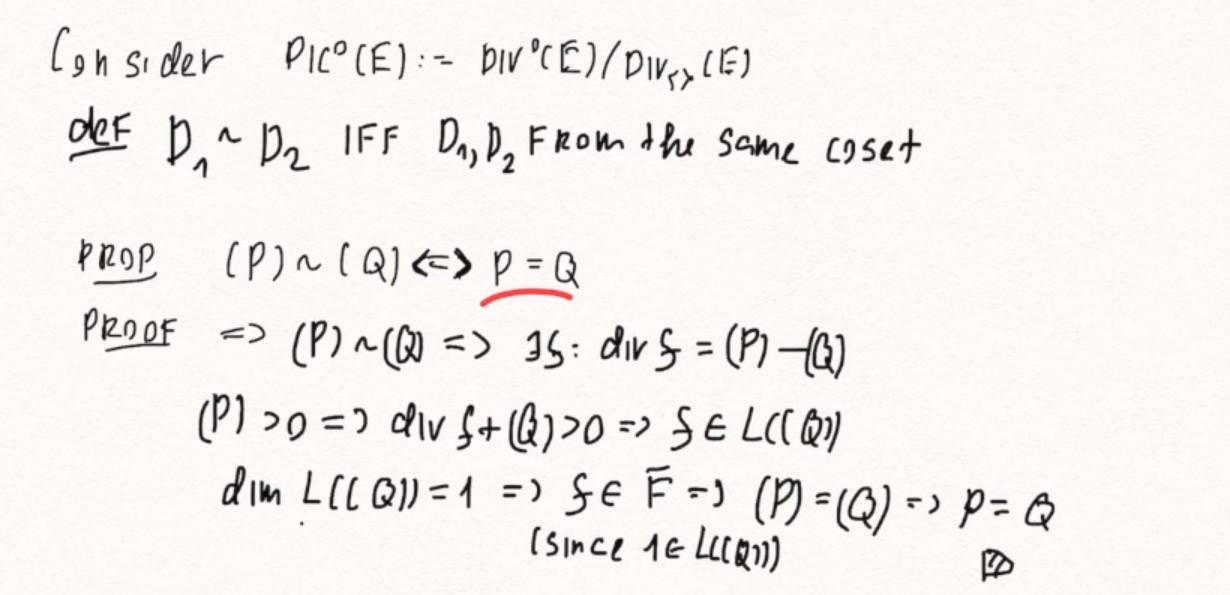 Consider PIC⁰(E) := DIV⁰(E)/DIV<>(E)
def D₁ ~ D₂ IFF D₁, D₂ From the same coset
PROP (P) ~ (Q) <=> P = Q
PROOF => (P) ~ (Q) => ∃f: div f = (P) - (Q)
(P) > 0 => div f + (Q) > 0 => f ∈ L((Q))
dim L((Q)) = 1 => f ∈ F̄ => (P) = (Q) => P = Q
(since 1 ∈ L((Q)))